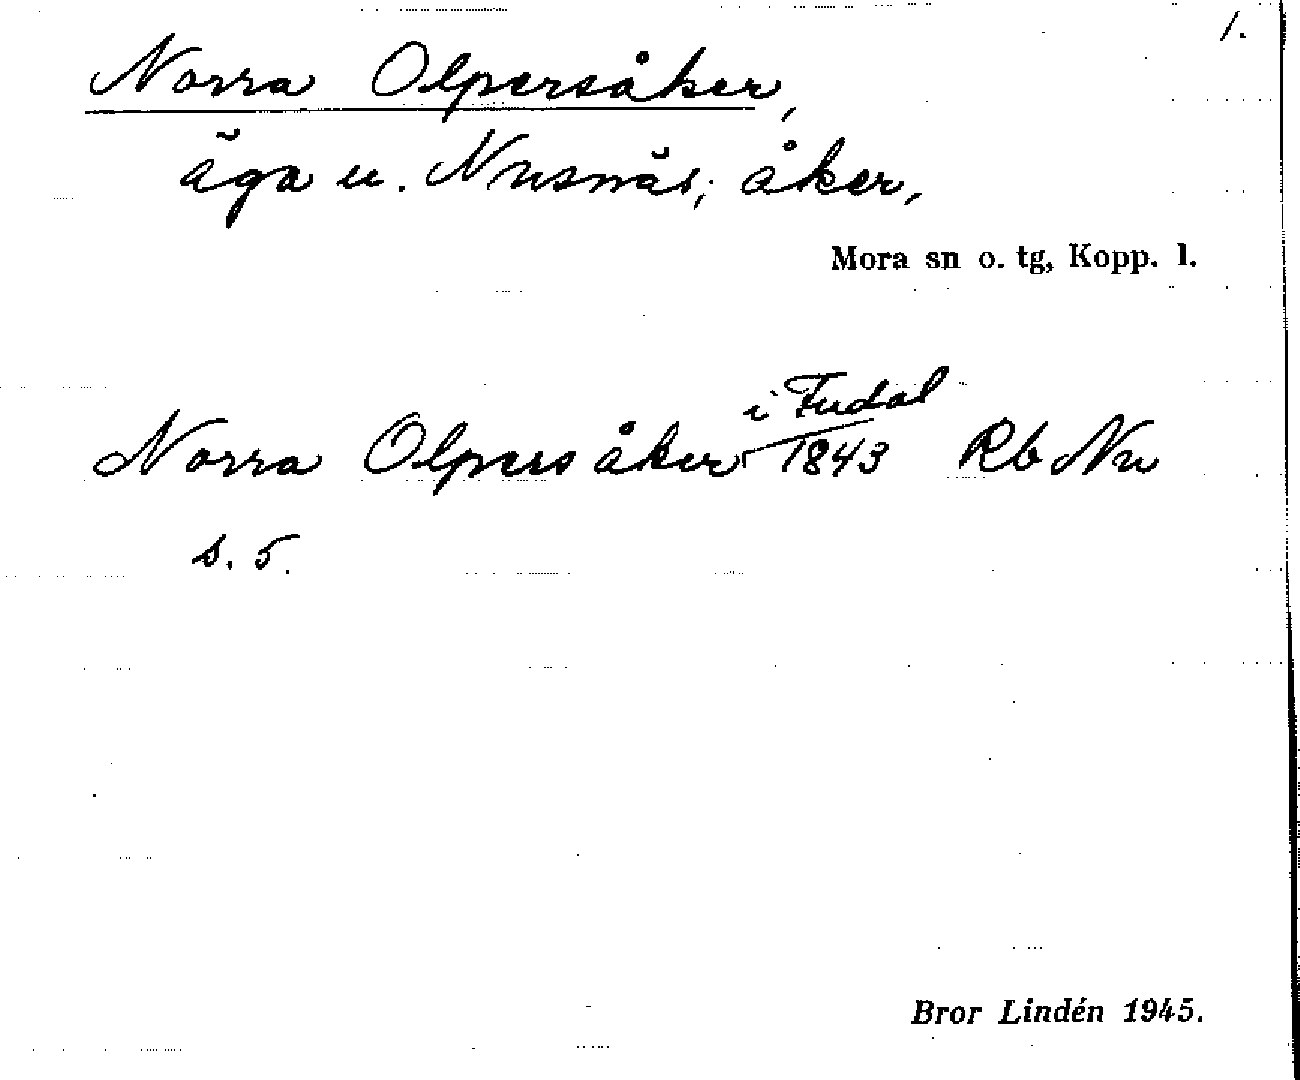 1.
Norra Olpersåker,
äga u. Nusnäs; åker,
Mora sn o. tg, Kopp. l.
i Fudal
Norra Olpersåker 1843 Rb Nu
s. 5.
Bror Lindén 1945.